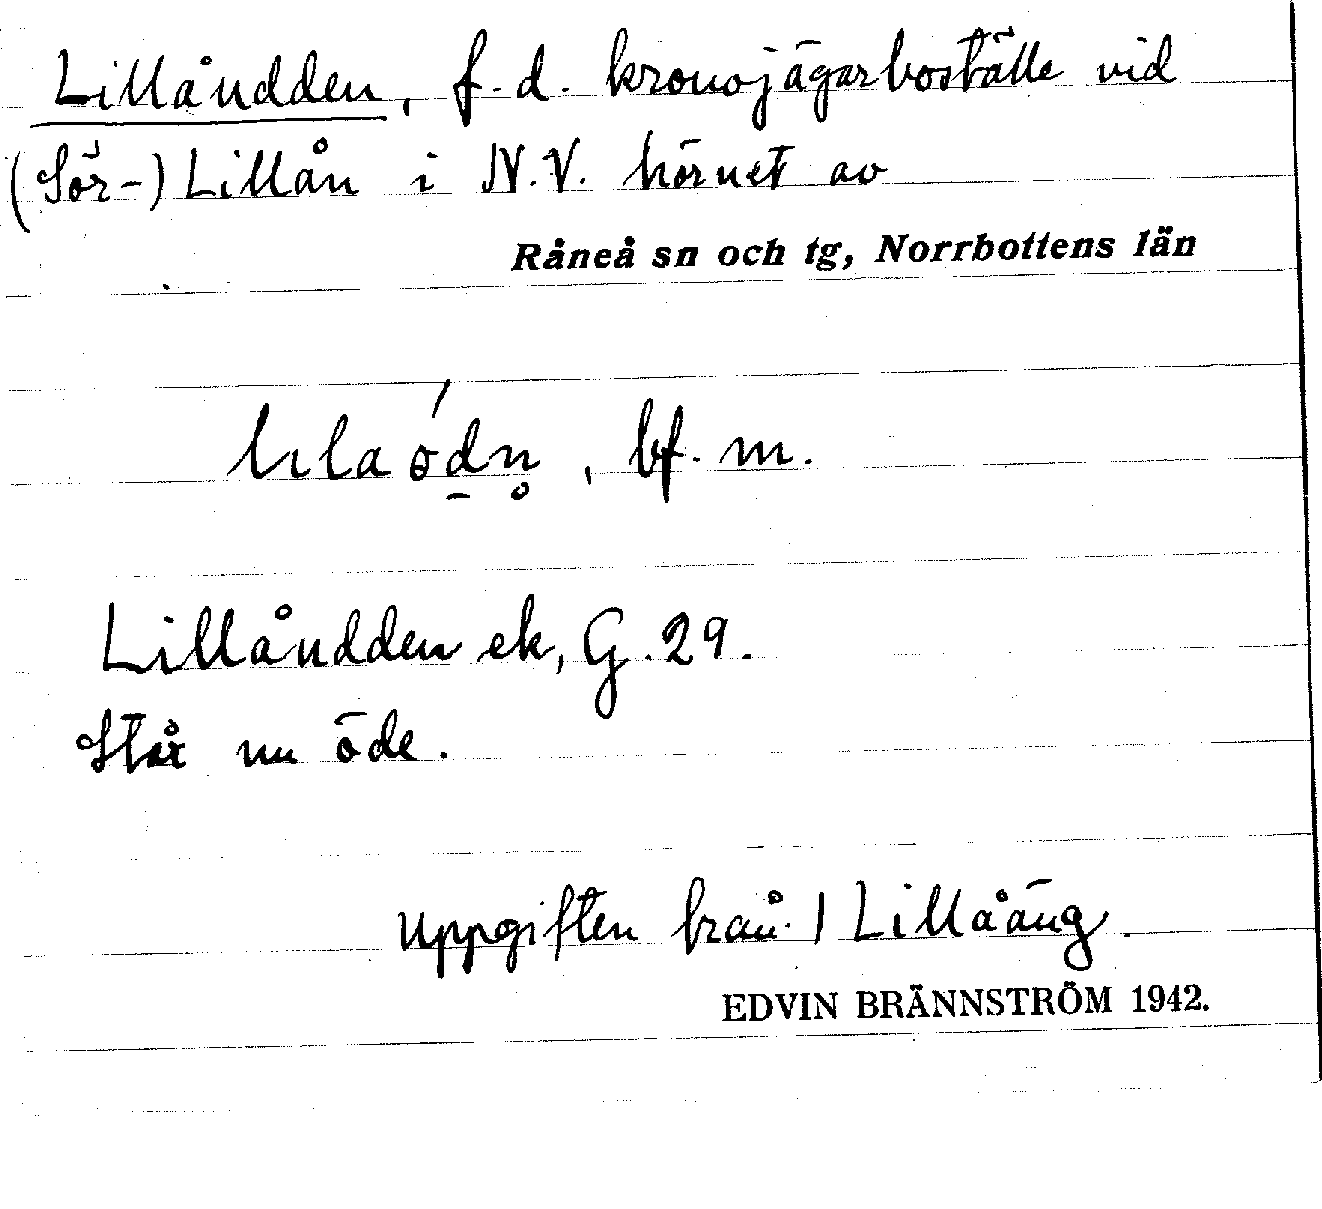 Lillåudden, f. d. kronojägarboställe vid
(Sör-) Lillån i N.V. hörnet av
Råneå sn och tg, Norrbottens län
, bf. m.
Lillåudden ek, G. 29.
Står nu öde.
Uppgiften från Lillåäng.
EDVIN BRÄNNSTRÖM 1942.